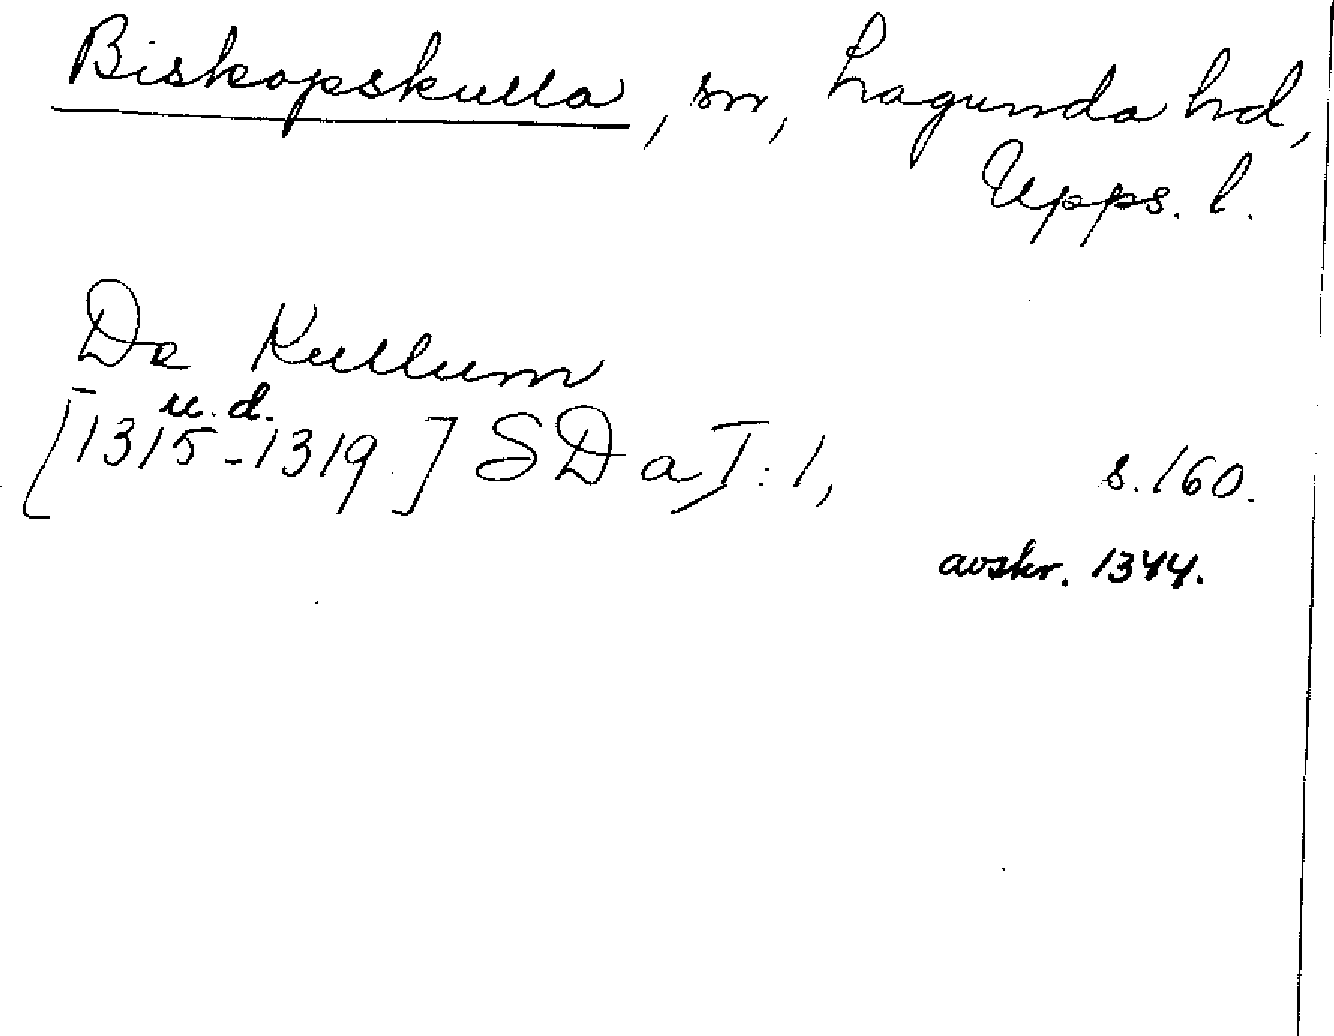 Biskopskulla, sn, Lagunda hd,
Upps. l.
De Kullum
u. d.
[1315-1319.] SD a I: 1, s. 160.
avskr. 1344.